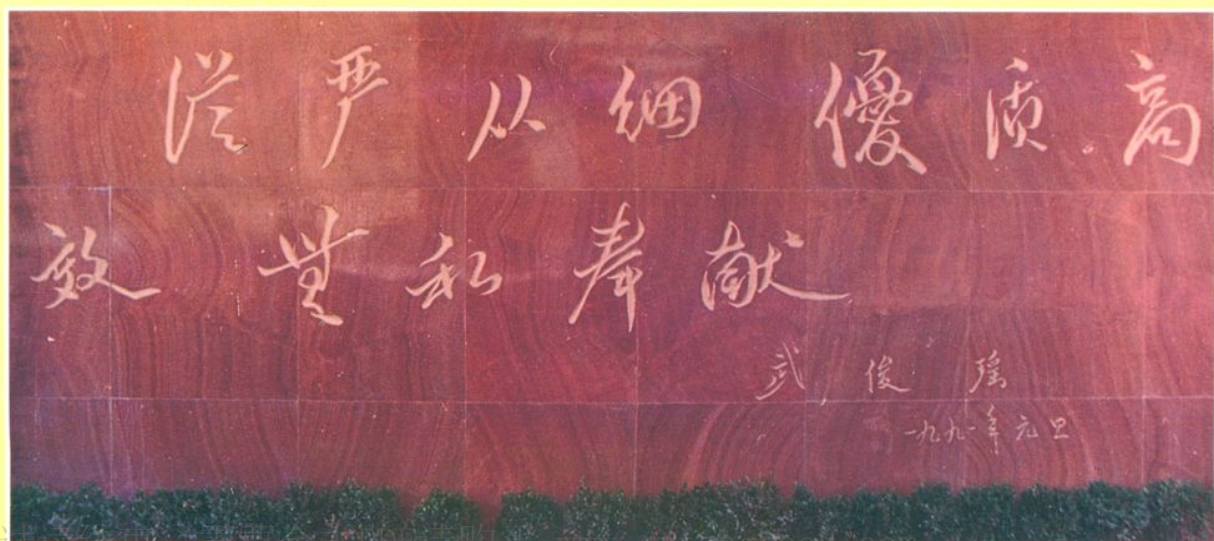 從严从细 優质高
效 無私奉献
武俊瑶
一九九一年元旦